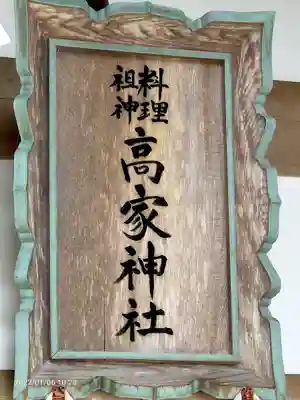 料理
祖神
高家神社
2022/01/06 10:28